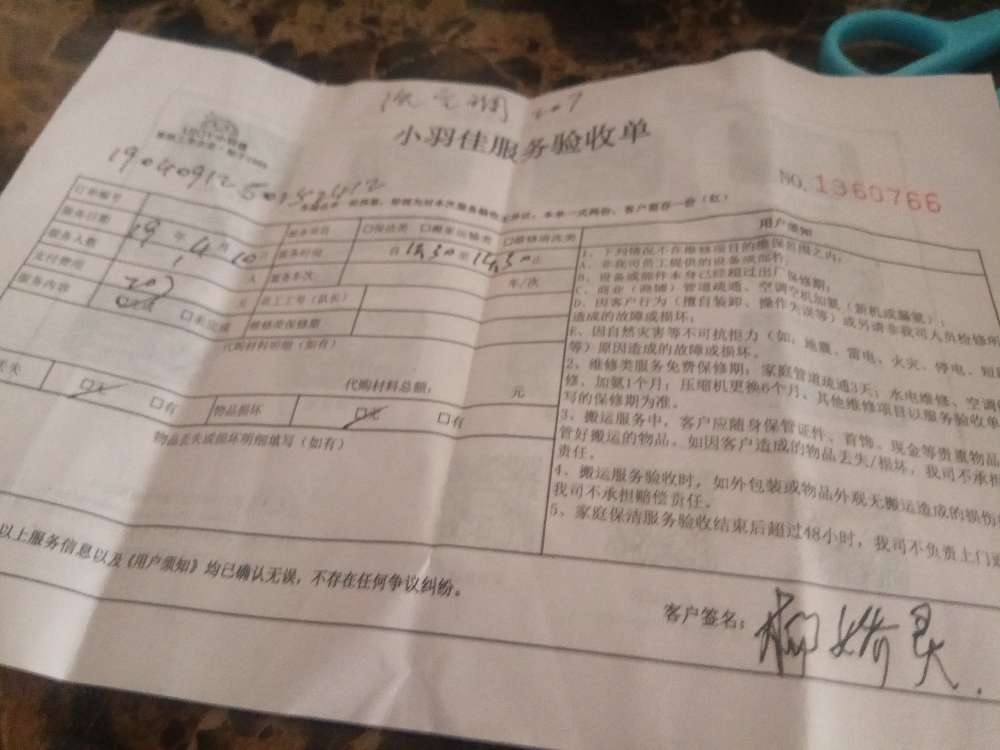 洗空调 207
小羽佳服务验收单
NO. 1360766
订单编号
服务日期 19 年 4 月 10 日
服务项目 口保洁类 口搬家运输类 口维修清洗类
服务时间 自 至 止
服务人数 人 服务车次 车/次
支付费用 元 员工工号（队长）
服务内容 口完成 口未完成 维修类保修期
代购材料明细（如有）
代购材料总额： 元
丢失 口无 口有 物品损坏 口无 口有
物品丢失或损坏明细填写（如有）
用户须知
1、下列情况不在维修项目的维保范围之内：
A、非我司员工提供的设备或部件；
B、设备或部件本身已经超过出厂保修期；
C、商业（商铺）管道疏通、空调空机加氟（新机或漏氟）；
D、因客户行为（擅自装卸、操作失误等）或另请非我司人员检修所
造成的故障或损坏；
E、因自然灾害等不可抗拒力（如：地震、雷电、火灾、停电、短
等）原因造成的故障或损坏。
2、维修类服务免费保修期：家庭管道疏通3天；水电维修、空调
修、加氟1个月；压缩机更换6个月、其他维修项目以服务验收单
写的保修期为准。
3、搬运服务中，客户应随身保管证件、首饰、现金等贵重物品
管好搬运的物品。如因客户造成的物品丢失/损坏，我司不承担
责任。
4、搬运服务验收时，如外包装或物品外观无搬运造成的损伤
我司不承担赔偿责任。
5、家庭保洁服务验收结束后超过48小时，我司不负责上门
以上服务信息以及《用户须知》均已确认无误，不存在任何争议纠纷。
客户签名：柳娇良